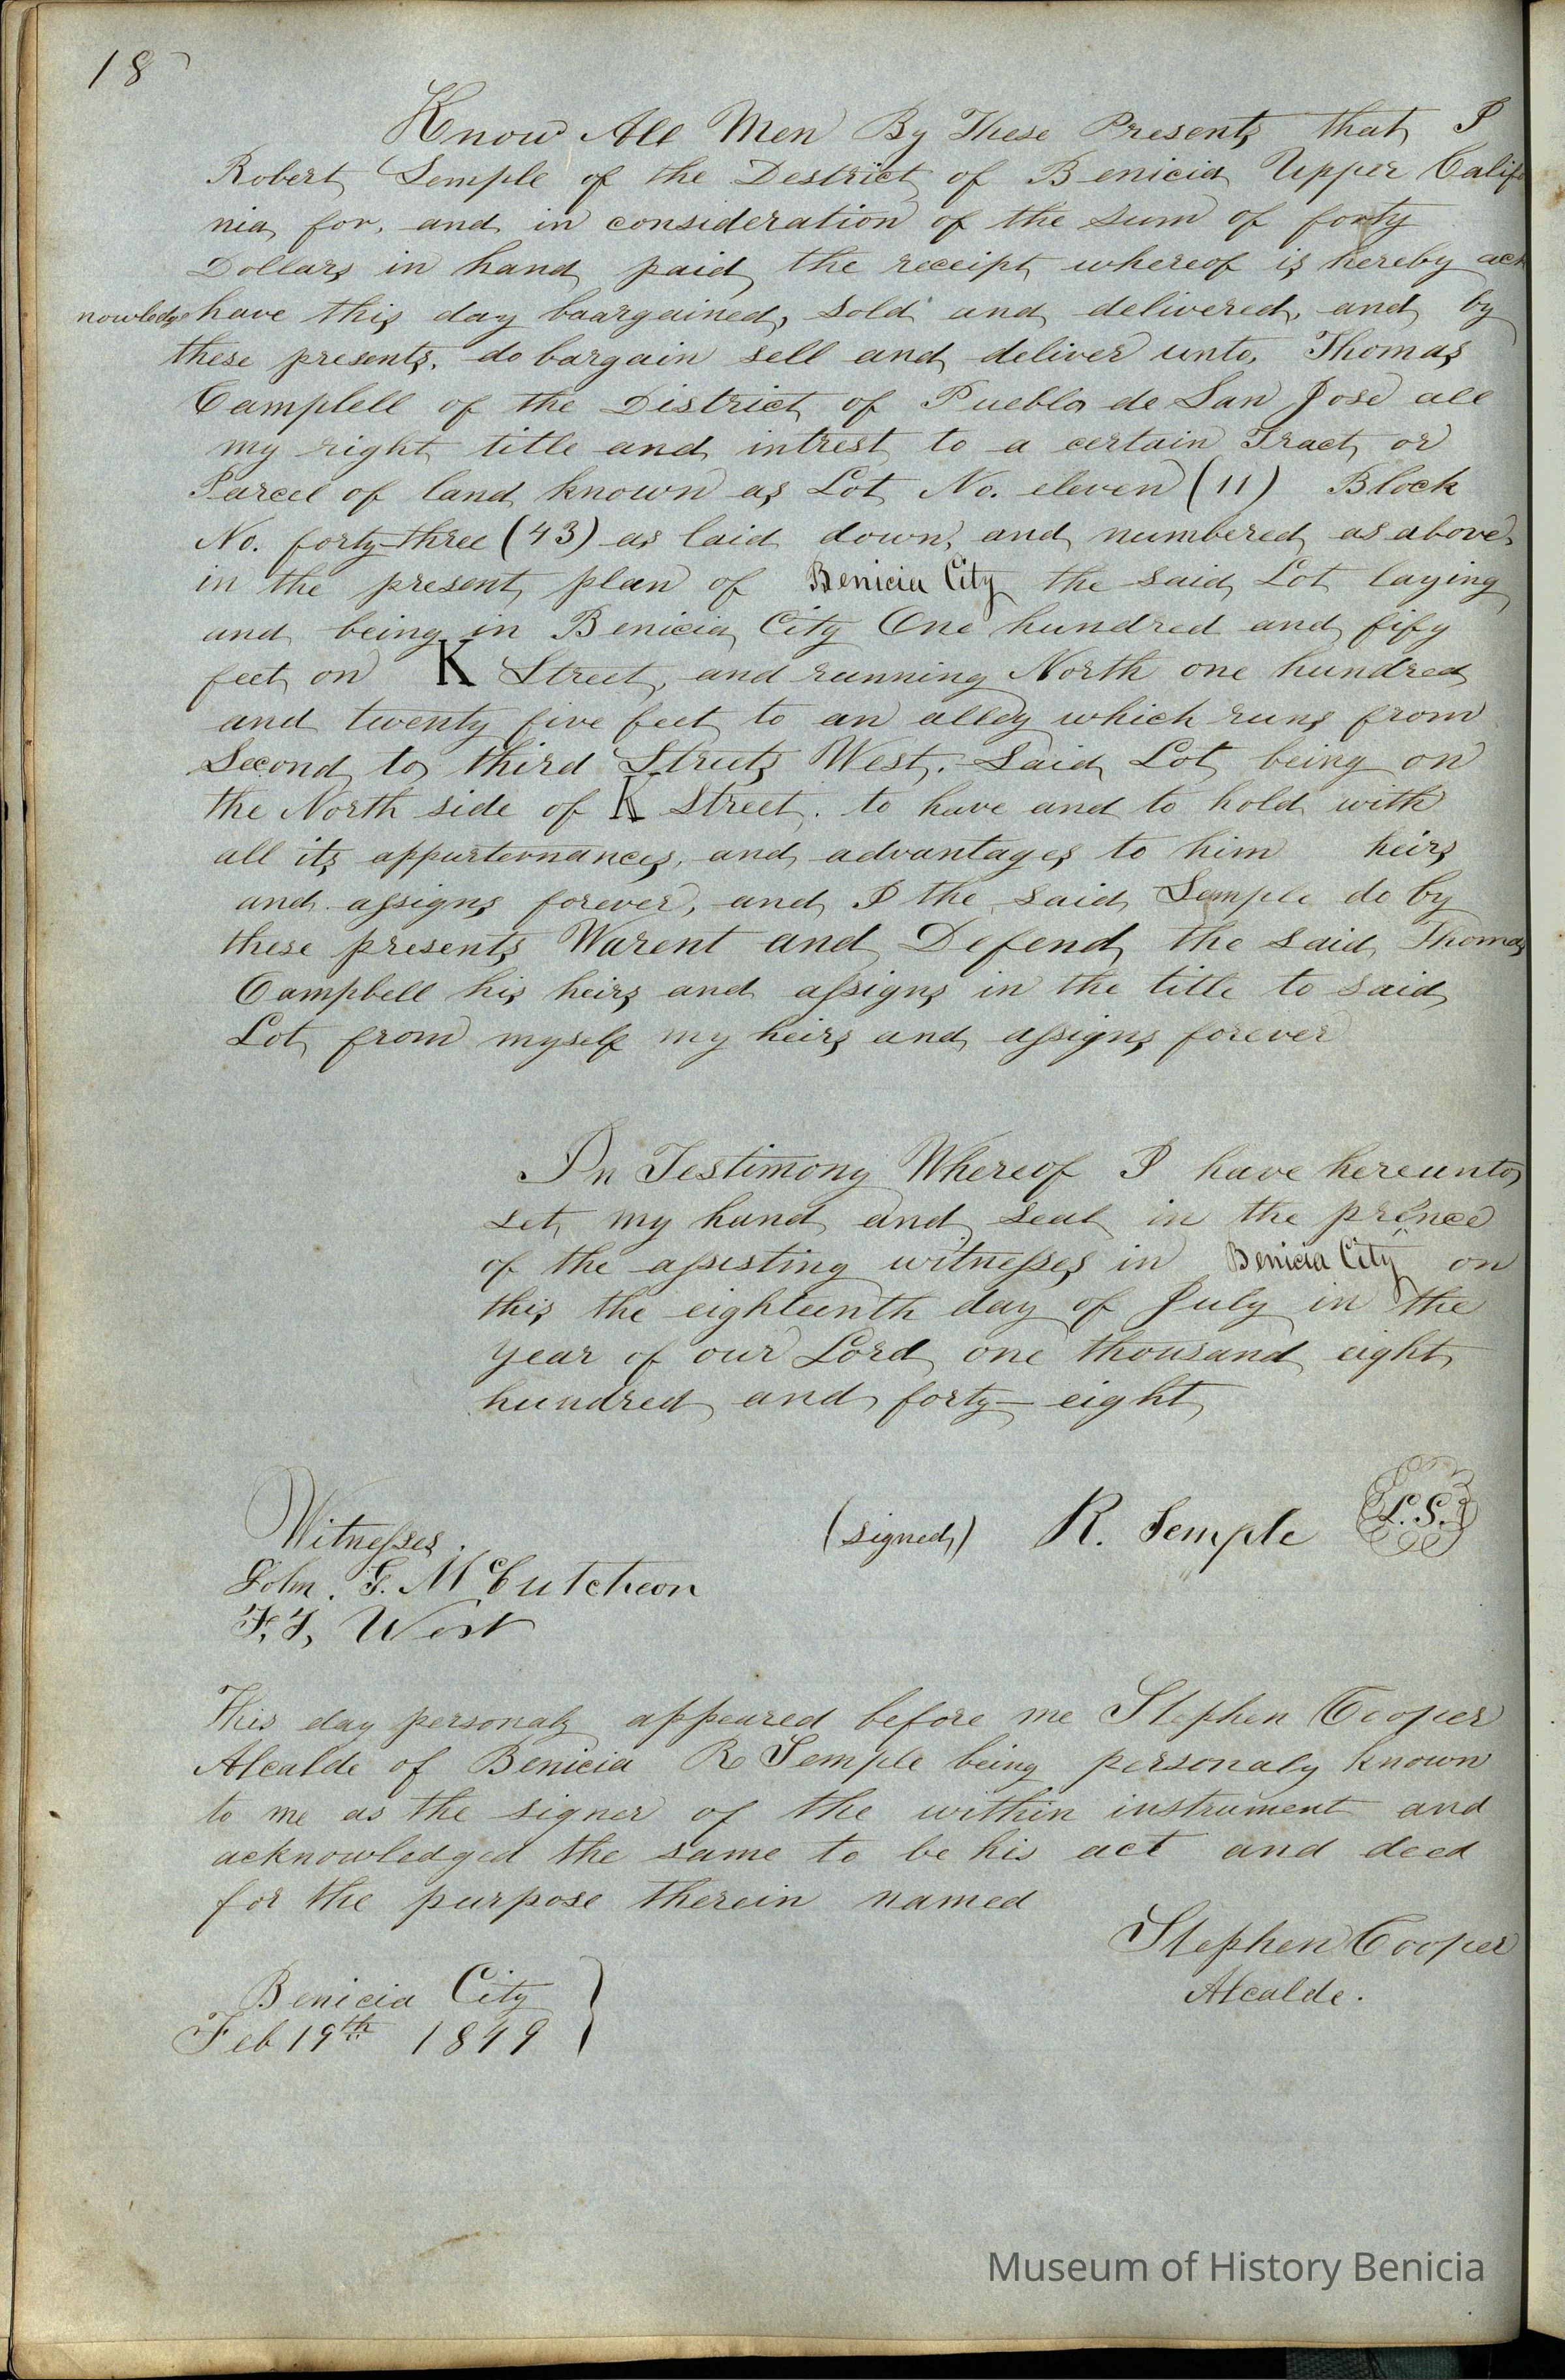 18
Know All Men By These Presents that I
Robert Semple of the Destrict of Benicia Upper Califo
nia, for, and in consideration of the sum of forty
Dollars in hand paid the receipt whereof is hereby ack
nowledge have this day baargained, sold and delivered, and by
these presents, do bargain sell and deliver unto, Thomas
Camplell of the District of Pueblo de San Jose all
my right title and intrest to a certain Tract or
Parcel of land known as Lot No. eleven (11) Block
No. forty-three (43) as laid down, and numbered as above,
in the present plan of Benicia City the said Lot laying
and being in Benicia City One hundred and fify
feet on K Street, and running North one hundred
and twenty five feet to an alley which runs from
Second to third Streets West. Said Lot being on
the North side of K Street. to have and to hold with
all its appurternances, and advantages to him heirs
and assigns forever, and I the said Semple do by
these presents Warent and Defend the said Thomas
Campbell his heirs and assigns in the title to said
Lot from myself my heirs and assigns forever
In Testimony Whereof I have hereunto
set my hand and seal in the prence
of the assisting witnesses in Benicia City on
this the eighteenth day of July in the
year of our Lord one thousand eight
hundred and forty-eight
Witnesses. (signed) R. Semple L.S.
John. F. McCutcheon
F. F. West
This day personaly appeared before me Stephen Cooper
Alcalde of Benicia R Semple being personaly known
to me as the signer of the within instrument and
acknowledged the same to be his act and deed
for the purpose therein named
Stephen Cooper
Alcalde.
Benicia City
Feb 19th 1849
Museum of History Benicia